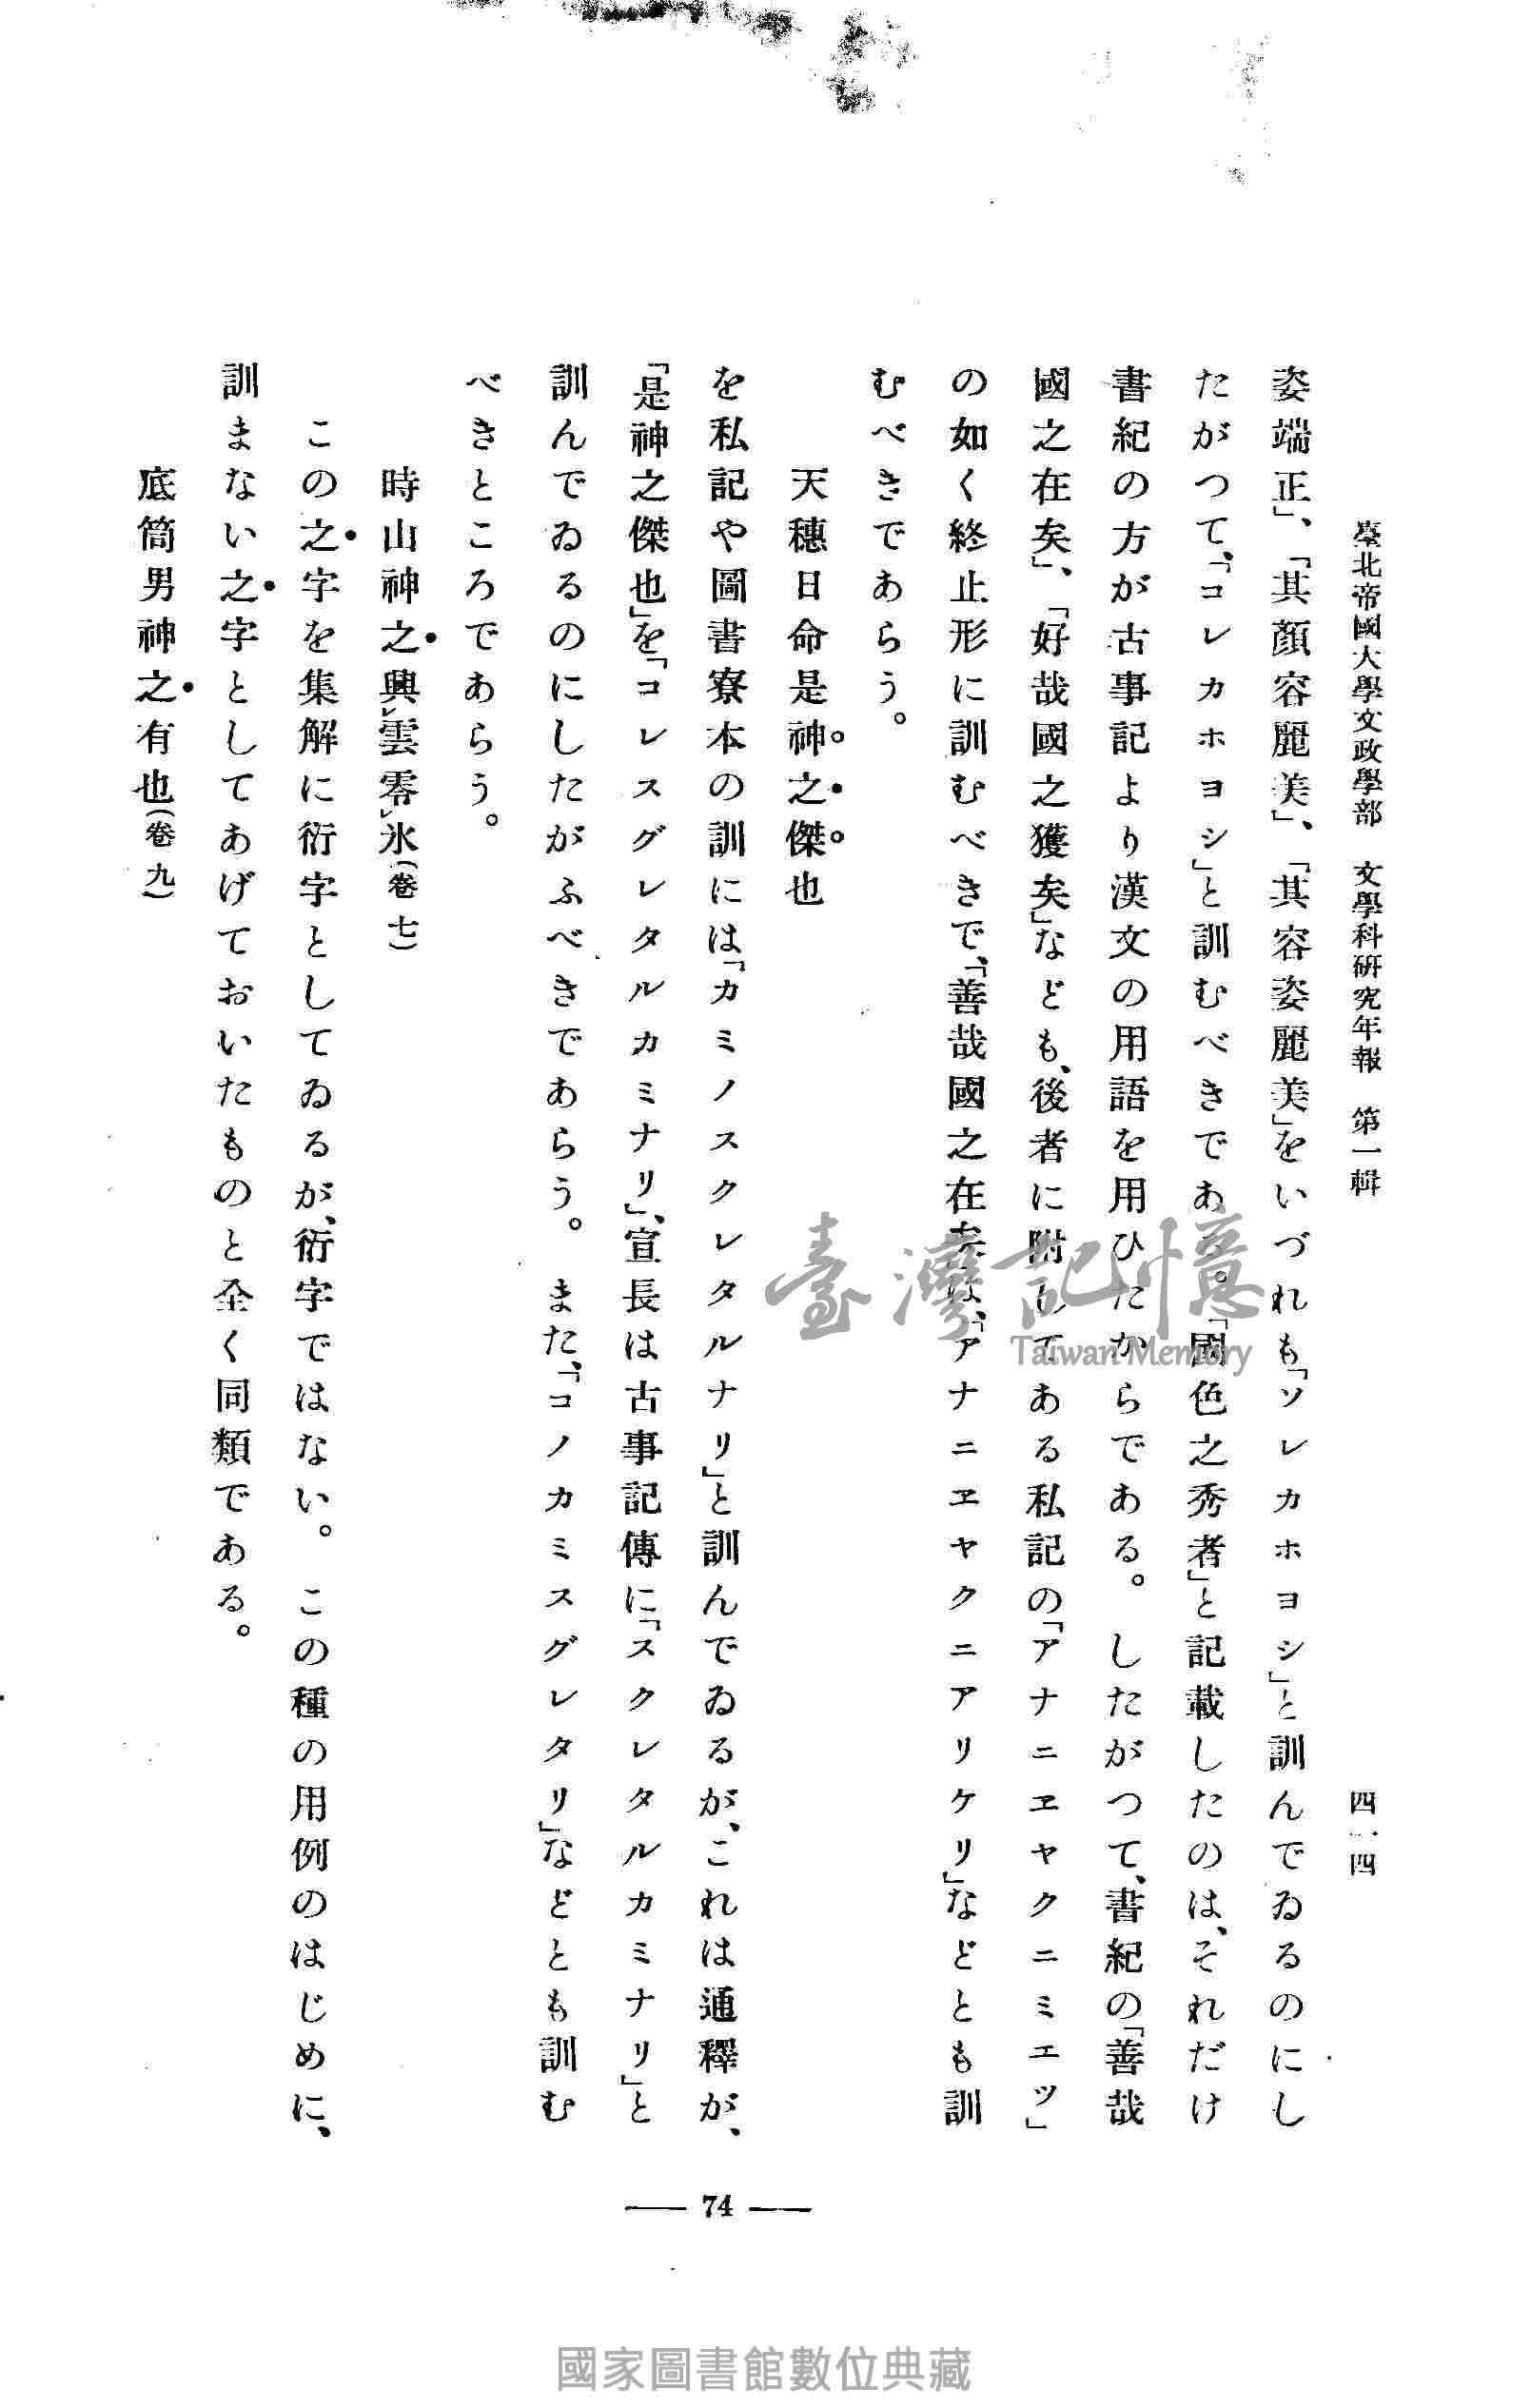 臺北帝國大學文政學部　文學科硏究年報　第一輯　四一四
姿端正」、「其顏容麗美」、「其容姿麗美」をいづれも「ソレカホヨシ」と訓んでゐるのにし
たがつて、「コレカホヨシ」と訓むべきである。「國色之秀者」と記載したのは、それだけ
書紀の方が古事記より漢文の用語を用ひたからである。したがつて、書紀の「善哉
國之在矣」、「好哉國之獲矣」なども、後者に附してある私記の「アナニヱヤクニミエツ」
の如く終止形に訓むべきで、「善哉國之在矣」は、「アナニヱヤクニアリケリ」などとも訓
むべきであらう。
天穗日命是神之傑也
を私記や圖書寮本の訓には「カミノスクレタルナリ」と訓んでゐるが、これは通釋が、
「是神之傑也」を「コレスグレタルカミナリ」、宣長は古事記傳に「スクレタルカミナリ」と
訓んでゐるのにしたがふべきであらう。また、「コノカミスグレタリ」などとも訓む
べきところであらう。
時山神之興レ雲零レ氷（卷七）
この之字を集解に衍字としてゐるが、衍字ではない。この種の用例のはじめに、
訓まない之字としてあげておいたものと全く同類である。
底筒男神之有也（卷九）
74
臺灣記憶
Taiwan Memory
國家圖書館數位典藏